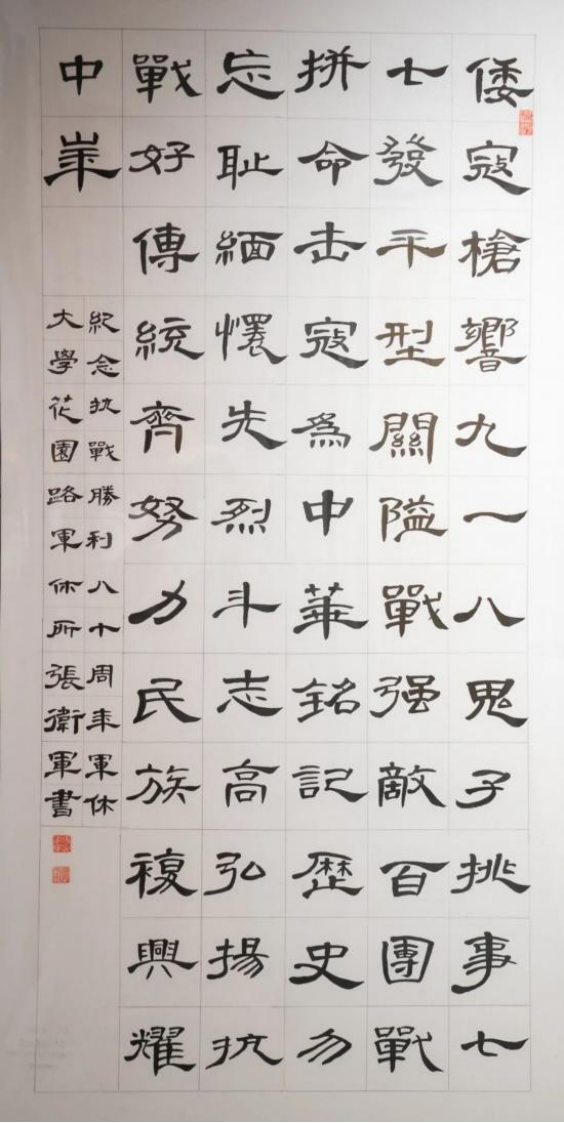 倭寇槍響九一八鬼子挑事七
七發平型關隘戰强敵百團戰
拼命击寇為中華銘記歷史勿
忘恥緬懷先烈斗志高弘揚抗
戰好傳統齊努力民族複興耀
中華
紀念抗戰勝利八十周年軍休
大學花園路軍休所張衛軍書